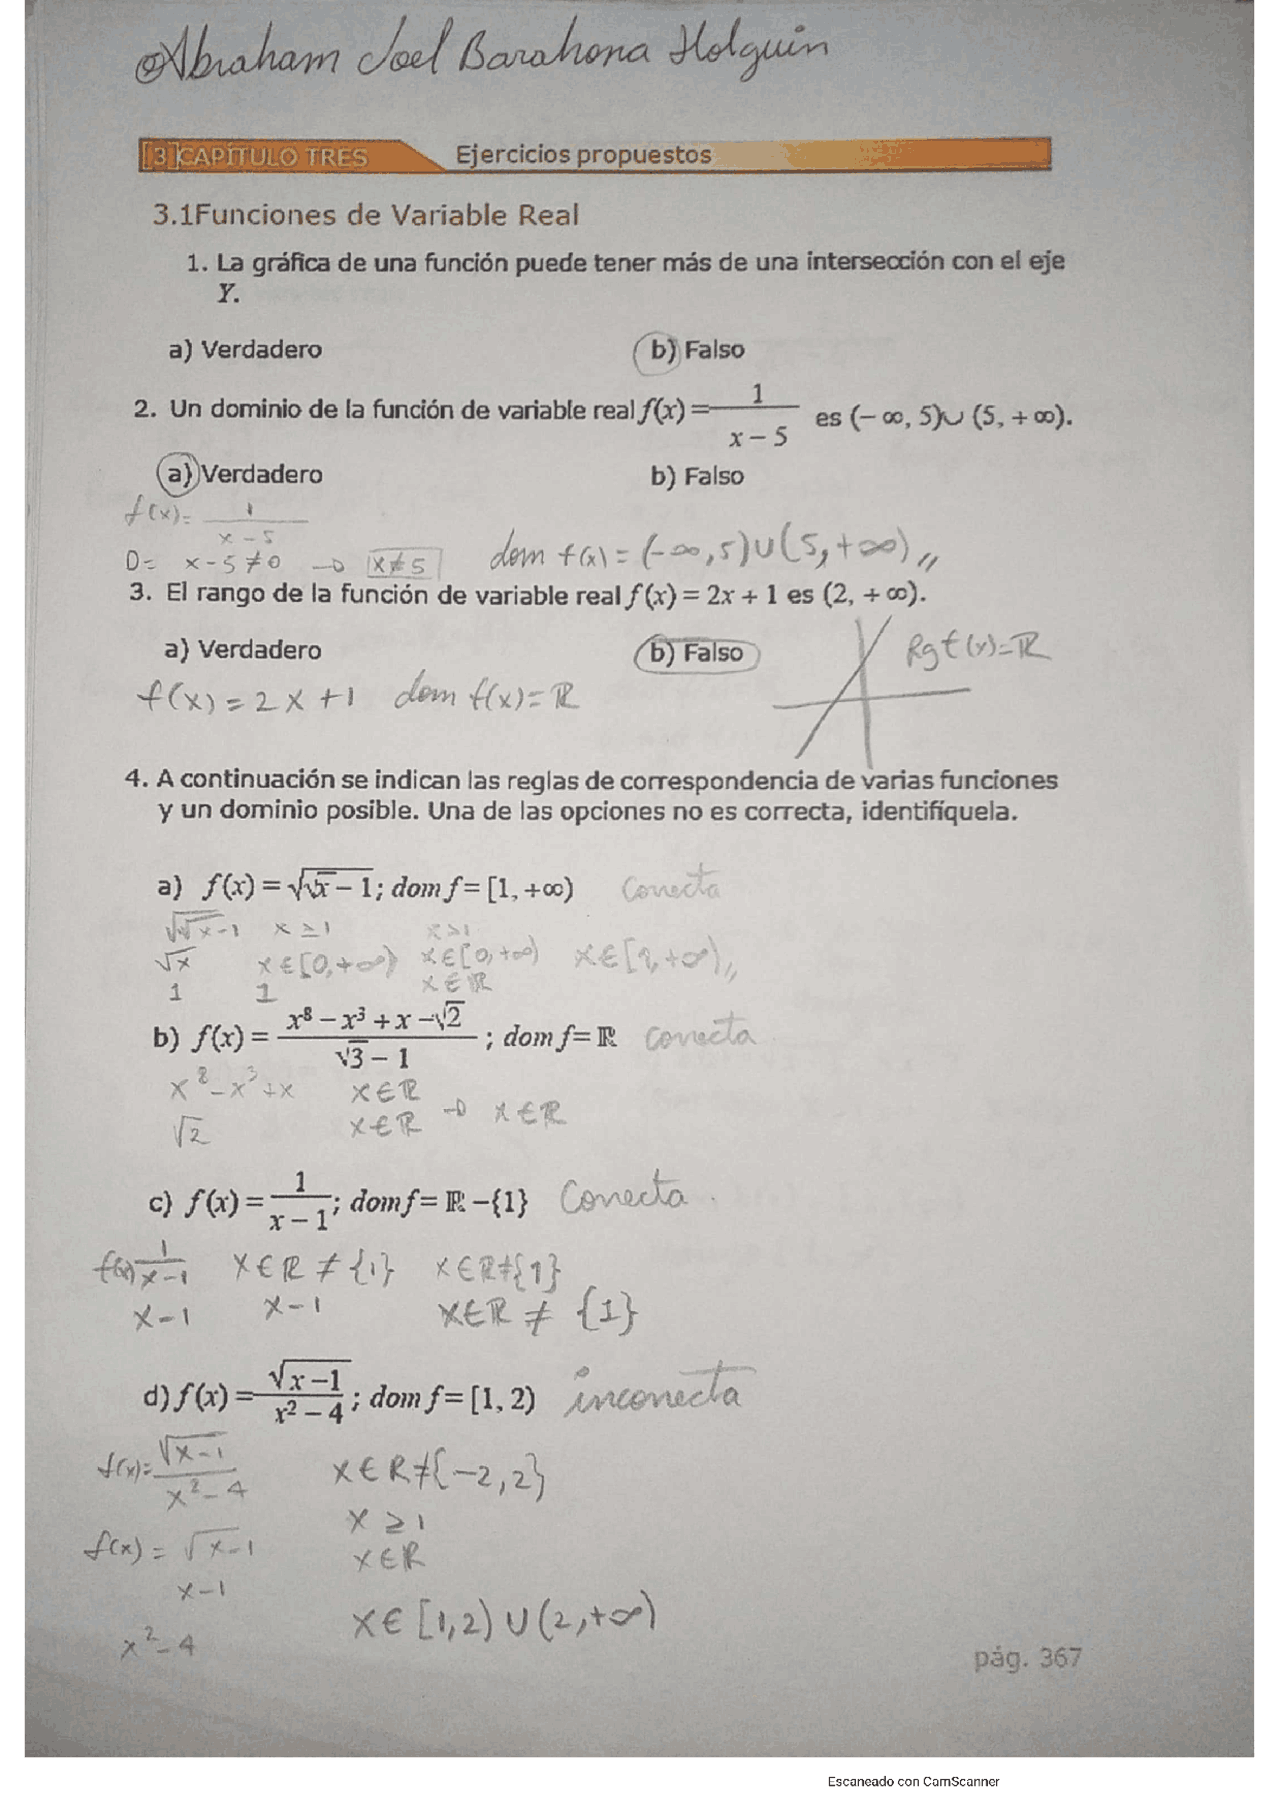 Abraham Joel Barahona Holguin
[3]CAPÍTULO TRES Ejercicios propuestos
3.1Funciones de Variable Real
1. La gráfica de una función puede tener más de una intersección con el eje
Y.
a) Verdadero b) Falso
2. Un dominio de la función de variable real f(x) = 1/(x − 5) es (− ∞, 5)∪ (5, + ∞).
a) Verdadero b) Falso
f(x)= 1/(x − 5)
D= x-5≠0 → x≠5 dom f(x) = (-∞,5)∪(5,+∞)//
3. El rango de la función de variable real f (x) = 2x + 1 es (2, + ∞).
a) Verdadero b) Falso Rg f(x)=ℝ
f(x) = 2x+1 dom f(x)=ℝ
4. A continuación se indican las reglas de correspondencia de varias funciones
y un dominio posible. Una de las opciones no es correcta, identifíquela.
a) f(x) = √(√x − 1); dom f= [1, +∞) Correcta
√(√x-1) x ≥ 1 x≥1
√x x∈[0,+∞) x∈[0,+∞) x∈[1,+∞)//
1 1 x∈ℝ
b) f(x) = (x⁸ − x³ + x −√2)/(√3 − 1) ; dom f= ℝ correcta
x⁸-x³+x x∈ℝ
→ x∈ℝ
√2 x∈ℝ
c) f(x) = 1/(x − 1); dom f= ℝ −{1} Correcta.
f(x) 1/(x-1) x∈ℝ ≠ {1} x∈ℝ≠{1}
x-1 x-1 x∈ℝ ≠ {1}
d) f(x) = √(x −1)/(x² − 4) ; dom f= [1, 2) incorrecta
f(x)= √(x-1)/(x²-4) x∈ℝ≠{-2,2}
x ≥ 1
f(x) = √(x-1) x∈ℝ
x-1
x∈[1,2) ∪ (2,+∞)
x²-4
pág. 367
Escaneado con CamScanner